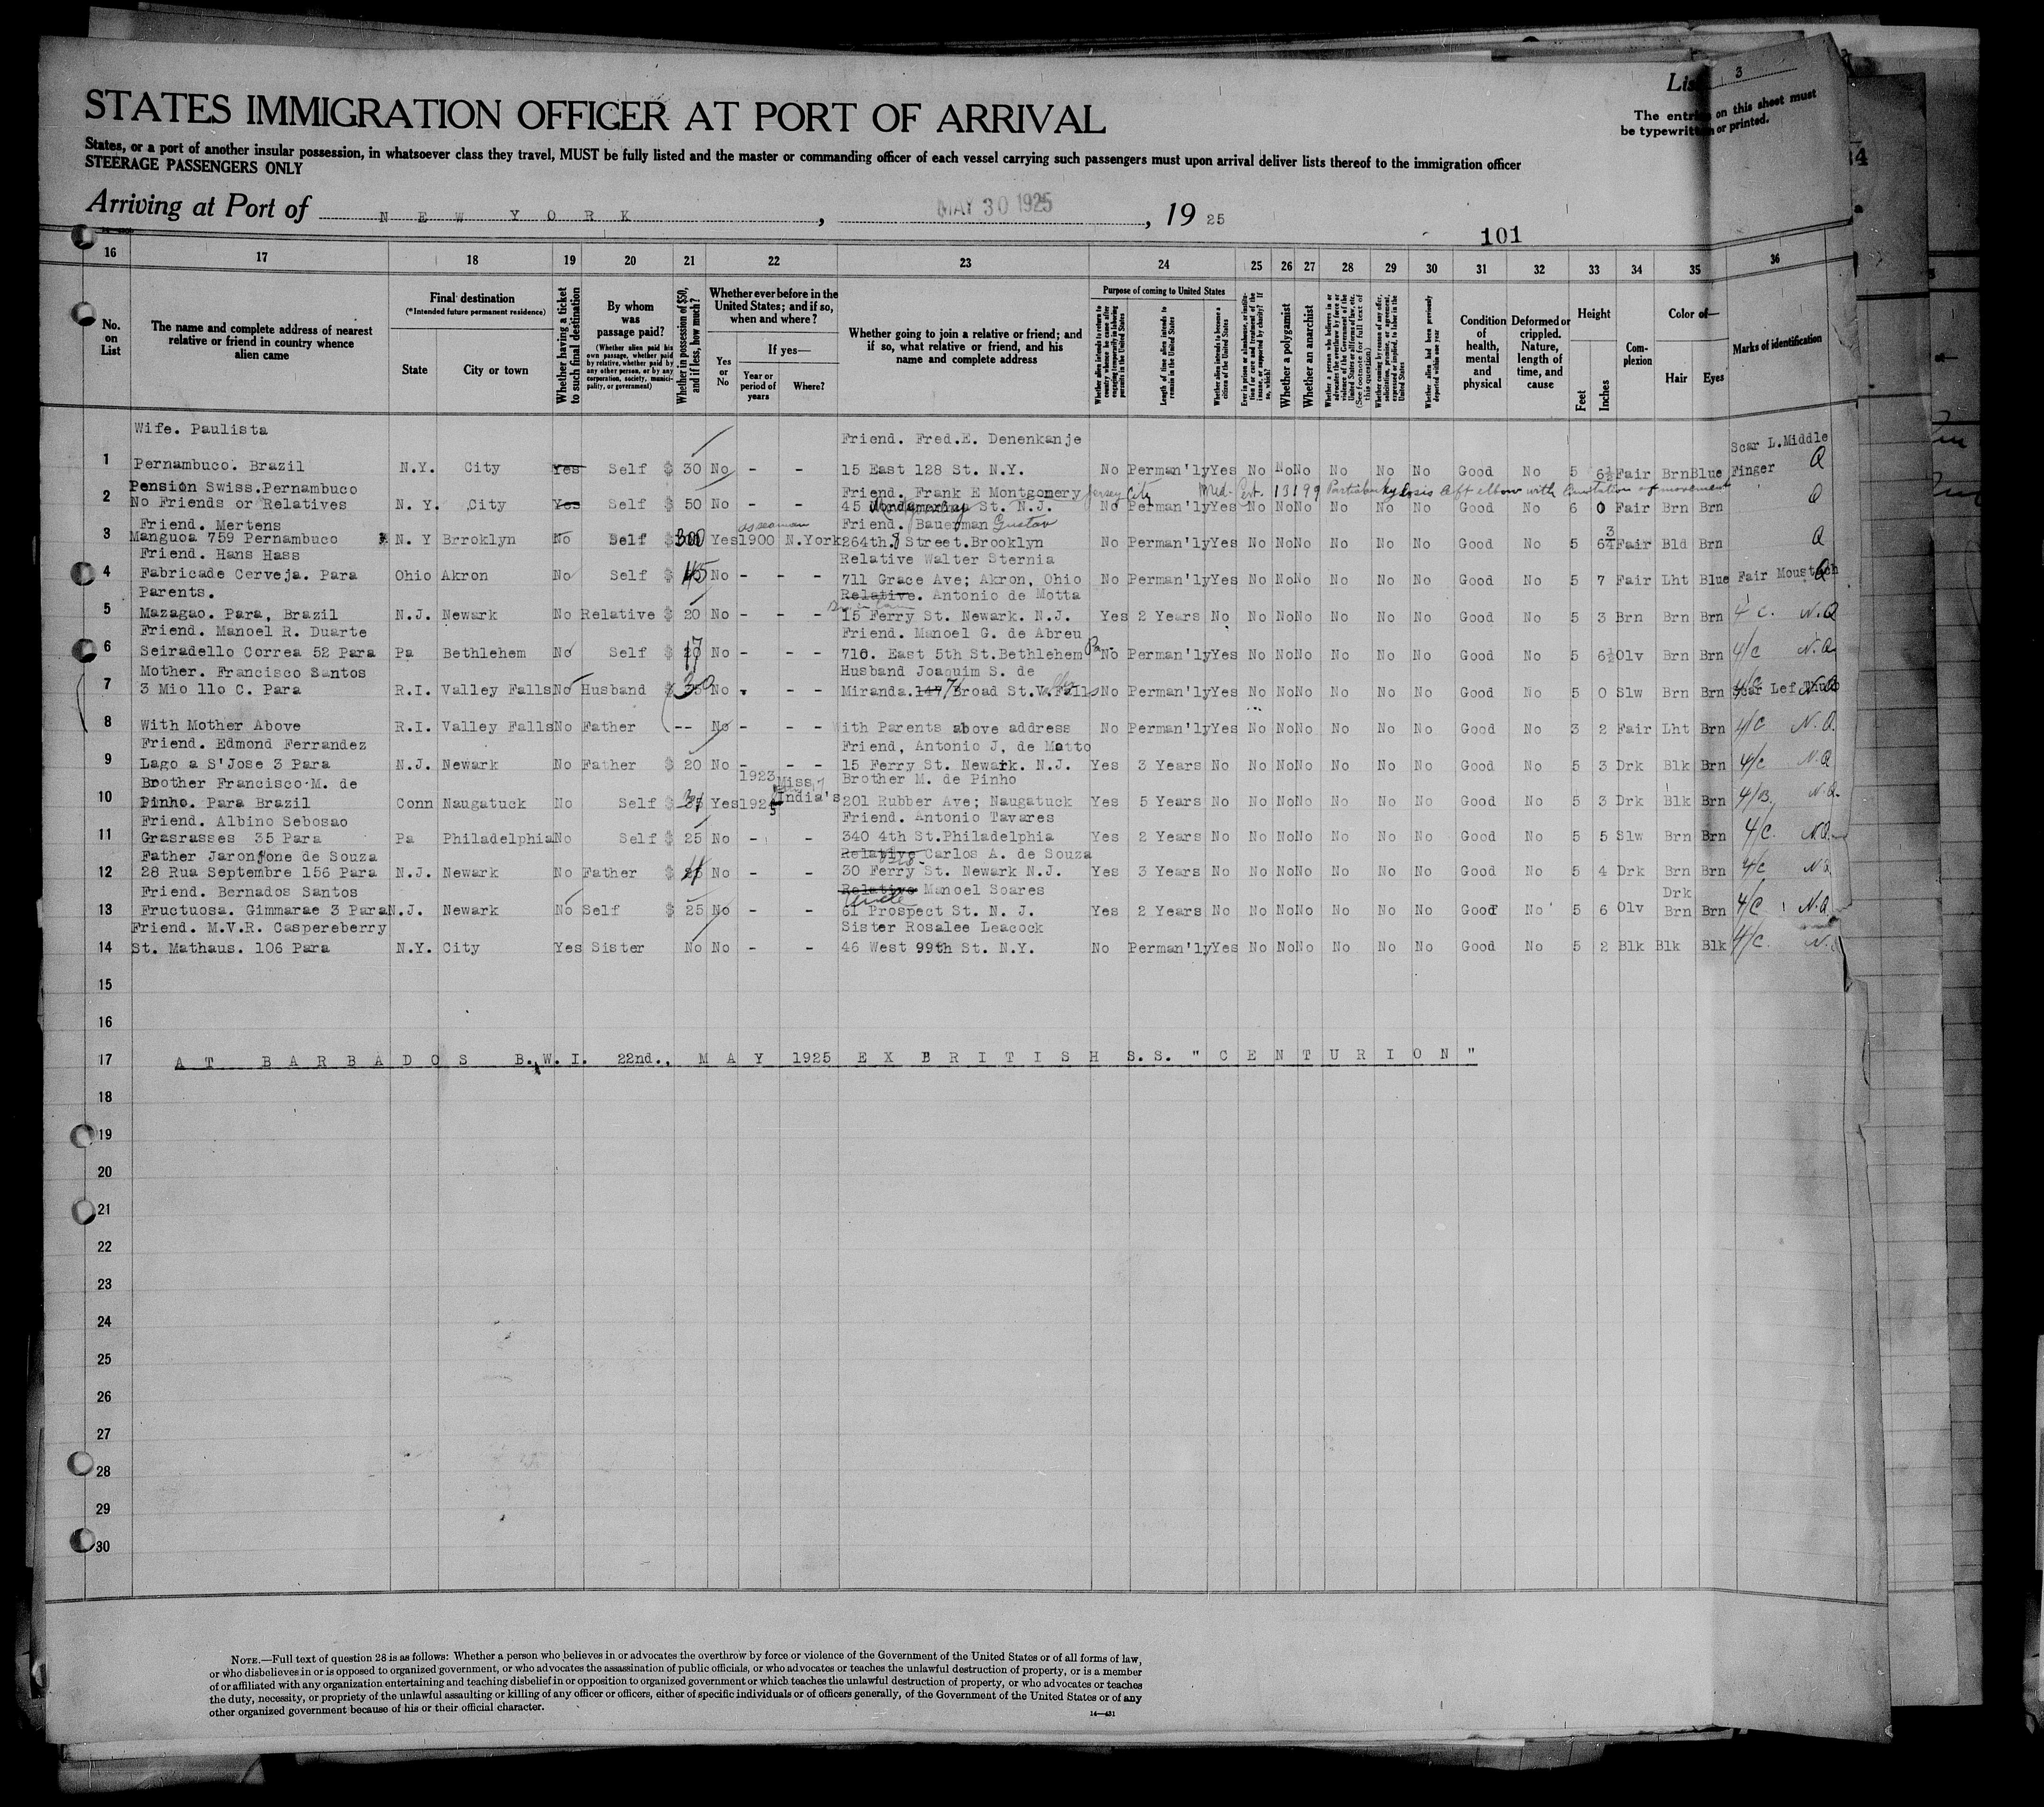 List 3
The entries on this sheet must
be typewritten or printed.
STATES IMMIGRATION OFFICER AT PORT OF ARRIVAL
States, or a port of another insular possession, in whatsoever class they travel, MUST be fully listed and the master or commanding officer of each vessel carrying such passengers must upon arrival deliver lists thereof to the immigration officer
STEERAGE PASSENGERS ONLY
Arriving at Port of NEW YORK, MAY 30 1925, 19 25
101
16 17 18 19 20 21 22 23 24 25 26 27 28 29 30 31 32 33 34 35 36
No. on List
The name and complete address of nearest relative or friend in country whence alien came
Final destination
(*Intended future permanent residence)
State
City or town
Whether having a ticket to such final destination
By whom was passage paid?
(Whether alien paid his own passage, whether paid by relative, whether paid by any other person, or by any corporation, society, municipality, or government)
Whether in possession of $50, and if less, how much?
Whether ever before in the United States; and if so, when and where?
Yes or No
If yes—
Year or period of years
Where?
Whether going to join a relative or friend; and if so, what relative or friend, and his name and complete address
Purpose of coming to United States
Whether alien intends to return to country whence he came after engaging temporarily in laboring pursuits in the United States
Length of time alien intends to remain in the United States
Whether alien intends to become a citizen of the United States
Ever in prison or almshouse, or institution for care and treatment of the insane, or supported by charity? If so, which?
Whether a polygamist
Whether an anarchist
Whether a person who believes in or advocates the overthrow by force or violence of the Government of the United States or all forms of law, etc. (See footnote for full text of this question)
Whether coming by reason of any offer, solicitation, promise, or agreement, expressed or implied, to labor in the United States
Whether alien had been previously deported within one year
Condition of health, mental and physical
Deformed or crippled. Nature, length of time, and cause
Height
Feet
Inches
Complexion
Color of—
Hair
Eyes
Marks of identification
Wife. Paulista Friend. Fred.E. Denenkanje Scar L.Middle
1 Pernambuco. Brazil N.Y. City Yes Self $ 30 No - - 15 East 128 St. N.Y. No Perman'ly Yes No No No No No No Good No 5 6½ Fair Brn Blue Finger Q
Pension Swiss.Pernambuco Friend. Frank E Montgomery Jersey City Med. Cert. 13199 left elbow with limitation of movement
2 No Friends or Relatives N. Y. City Yes Self $ 50 No - - 45 St. N.J. No Perman'ly Yes No No No No No No Good No 6 0 Fair Brn Brn Q
Friend. Mertens as seaman Friend. Bauerman Gustav
3 Manguoa 759 Pernambuco N. Y Brroklyn No Self $ 300 Yes 1900 N.York 264th. Street.Brooklyn No Perman'ly Yes No No No No No No Good No 5 6¾ Fair Bld Brn Q
Friend. Hans Hass Relative Walter Sternia
4 Fabricade Cerveja. Para Ohio Akron No Self $ 45 No - - - 711 Grace Ave; Akron, Ohio No Perman'ly Yes No No No No No No Good No 5 7 Fair Lht Blue Fair Moustach Q
Parents. Relative. Antonio de Motta
5 Mazagao. Para, Brazil N.J. Newark No Relative $ 20 No - - - 15 Ferry St. Newark. N.J. Yes 2 Years No No No No No No No Good No 5 3 Brn Brn Brn 4/C. N.Q
Friend. Manoel R. Duarte Friend. Manoel G. de Abreu
6 Seiradello Correa 52 Para Pa Bethlehem No Self $ 17 No - - - 710. East 5th St.Bethlehem Pa No Perman'ly Yes No No No No No No Good No 5 6½ Olv Brn Brn 4/C N.Q
Mother. Francisco Santos Husband Joaquim S. de
7 3 Mio 110 C. Para R.I. Valley Falls No Husband $ 30 No - - - Miranda. 147 71 Broad St.V.Falls No Perman'ly Yes No No No No No No Good No 5 0 Slw Brn Brn Scar Lef Thumb 4/C N.Q
8 With Mother Above R.I. Valley Falls No Father -- No - - - With Parents above address No Perman'ly Yes No No No No No No Good No 3 2 Fair Lht Brn 4/C N.Q.
Friend. Edmond Ferrandez Friend, Antonio J, de Matto
9 Lago a S'Jose 3 Para N.J. Newark No Father $ 20 No - - - 15 Ferry St. Newark. N.J. Yes 3 Years No No No No No No No Good No 5 3 Drk Blk Brn 4/C N.Q
Brother Francisco M. de 1923 Miss, Brother M. de Pinho
10 Pinho. Para Brazil Conn Naugatuck No Self $ Yes 1925 India's 201 Rubber Ave; Naugatuck Yes 5 Years No No No No No No No Good No 5 3 Drk Blk Brn 4/B. N.Q.
Friend. Albino Sebosao Friend. Antonio Tavares
11 Grasrasses 35 Para Pa Philadelphia No Self $ 25 No - - 340 4th St.Philadelphia Yes 2 Years No No No No No No No Good No 5 5 Slw Brn Brn 4/C. N.Q.
Father Jaronfone de Souza Relative Carlos A. de Souza
12 28 Rua Septembre 156 Para N.J. Newark No Father $ No - - 30 Ferry St. Newark N.J. Yes 3 Years No No No No No No No Good No 5 4 Drk Brn Brn 4/C N.Q
Friend. Bernados Santos Relative Uncle Manoel Soares Drk
13 Fructuosa. Gimmarae 3 Para N.J. Newark No Self $ 25 No - - 61 Prospect St. N. J. Yes 2 Years No No No No No No No Good No 5 6 Olv Brn Brn 4/C N.Q
Friend. M.V.R. Caspereberry Sister Rosalee Leacock
14 St. Mathaus. 106 Para N.Y. City Yes Sister No No - - 46 West 99th St. N.Y. No Perman'ly Yes No No No No No No Good No 5 2 Blk Blk Blk 4/C. N.
15
16
17 AT BARBADOS B.W.I. 22nd., MAY 1925 EX BRITISH S.S. "CENTURION"
18
19
20
21
22
23
24
25
26
27
28
29
30
NOTE.—Full text of question 28 is as follows: Whether a person who believes in or advocates the overthrow by force or violence of the Government of the United States or of all forms of law,
or who disbelieves in or is opposed to organized government, or who advocates the assassination of public officials, or who advocates or teaches the unlawful destruction of property, or is a member
of or affiliated with any organization entertaining and teaching disbelief in or opposition to organized government or which teaches the unlawful destruction of property, or who advocates or teaches
the duty, necessity, or propriety of the unlawful assaulting or killing of any officer or officers, either of specific individuals or of officers generally, of the Government of the United States or of any
other organized government because of his or their official character.
14—431